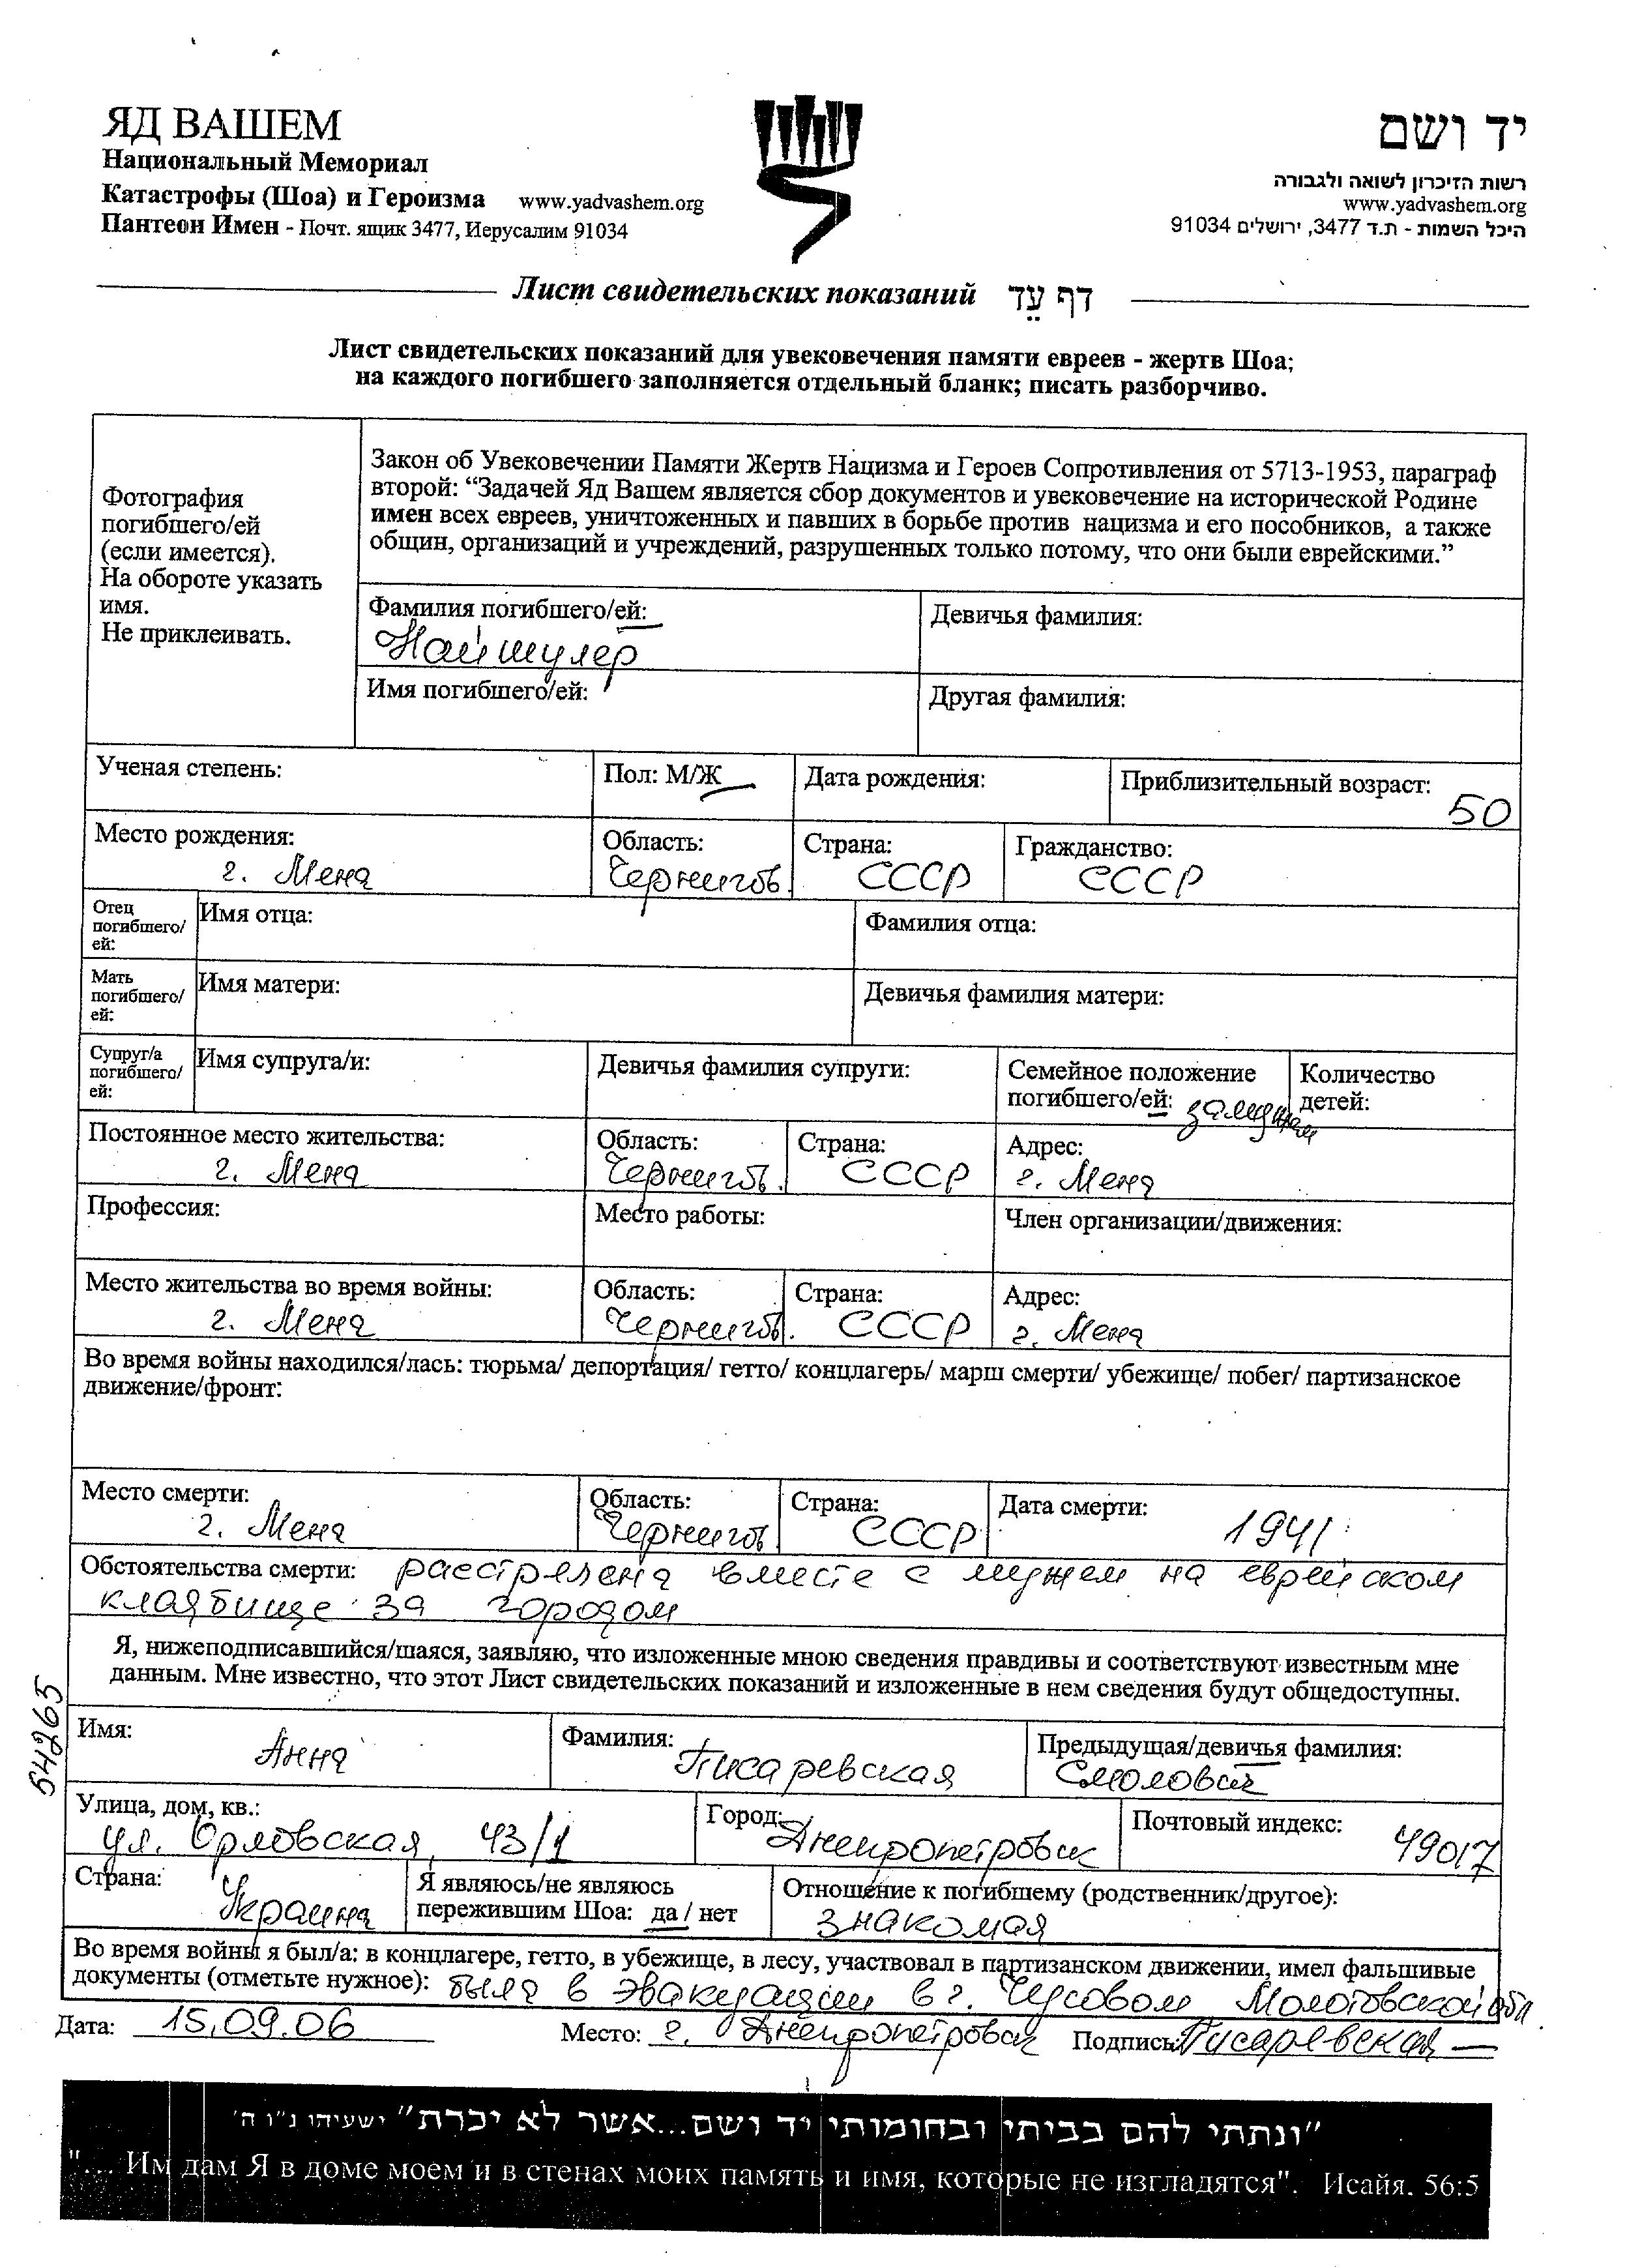 ЯД ВАШЕМ
Национальный Мемориал
Катастрофы (Шоа) и Героизма www.yadvashem.org
Пантеон Имен - Почт. ящик 3477, Иерусалим 91034
יד ושם
רשות הזיכרון לשואה ולגבורה
www.yadvashem.org
היכל השמות - ת.ד 3477, ירושלים 91034
Лист свидетельских показаний דף עֵד
Лист свидетельских показаний для увековечения памяти евреев - жертв Шоа;
на каждого погибшего заполняется отдельный бланк; писать разборчиво.
Фотография
погибшего/ей
(если имеется).
На обороте указать
имя.
Не приклеивать.
Закон об Увековечении Памяти Жертв Нацизма и Героев Сопротивления от 5713-1953, параграф
второй: “Задачей Яд Вашем является сбор документов и увековечение на исторической Родине
имен всех евреев, уничтоженных и павших в борьбе против нацизма и его пособников, а также
общин, организаций и учреждений, разрушенных только потому, что они были еврейскими.”
Фамилия погибшего/ей: Девичья фамилия:
Наймулер
Имя погибшего/ей: Другая фамилия:
Ученая степень: Пол: М/Ж Дата рождения: Приблизительный возраст: 50
Место рождения: Область: Страна: Гражданство:
г. Мена Чернигов. СССР СССР
Отец
погибшего/
ей:
Имя отца: Фамилия отца:
Мать
погибшего/
ей:
Имя матери: Девичья фамилия матери:
Супруг/а
погибшего/
ей:
Имя супруга/и: Девичья фамилия супруги:
Семейное положение
погибшего/ей: замужем
Количество
детей:
Постоянное место жительства: Область: Страна: Адрес:
г. Мена Чернигов. СССР г. Мена
Профессия: Место работы: Член организации/движения:
Место жительства во время войны: Область: Страна: Адрес:
г. Мена Чернигов. СССР г. Мена
Во время войны находился/лась: тюрьма/ депортация/ гетто/ концлагерь/ марш смерти/ убежище/ побег/ партизанское
движение/фронт:
Место смерти: Область: Страна: Дата смерти:
г. Мена Чернигов СССР 1941
Обстоятельства смерти: расстреляна вместе с мужем на еврейском
кладбище за городом
Я, нижеподписавшийся/шаяся, заявляю, что изложенные мною сведения правдивы и соответствуют известным мне
данным. Мне известно, что этот Лист свидетельских показаний и изложенные в нем сведения будут общедоступны.
54265
Имя: Фамилия: Предыдущая/девичья фамилия:
Анна Писаревская Смоловая
Улица, дом, кв.: Город: Почтовый индекс:
ул. Орловская, 43/1 Днепропетровск 49017
Страна: Украина
Я являюсь/не являюсь
пережившим Шоа: да / нет
Отношение к погибшему (родственник/другое):
знакомая
Во время войны я был/а: в концлагере, гетто, в убежище, в лесу, участвовал в партизанском движении, имел фальшивые
документы (отметьте нужное): была в эвакуации в г. Чусовом Молотовской обл.
Дата: 15.09.06 Место: г. Днепропетровск Подпись: Писаревская
"ונתתי להם בביתי ובחומותי יד ושם...אשר לא יכרת" ישעיהו נ"ו ה'
"... Им дам Я в доме моем и в стенах моих память и имя, которые не изгладятся". Исайя. 56:5